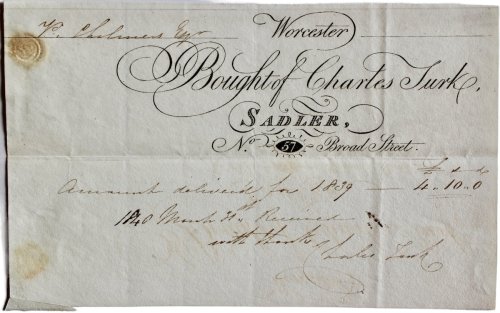 Worcester
Chalmers Esqr
Bought of Charles Turk,
SADLER,
No. 57 Broad Street.
£ s d
Amount delivered for 1839 — 4.10.0
1840 March Received
with thanks
Charles Turk